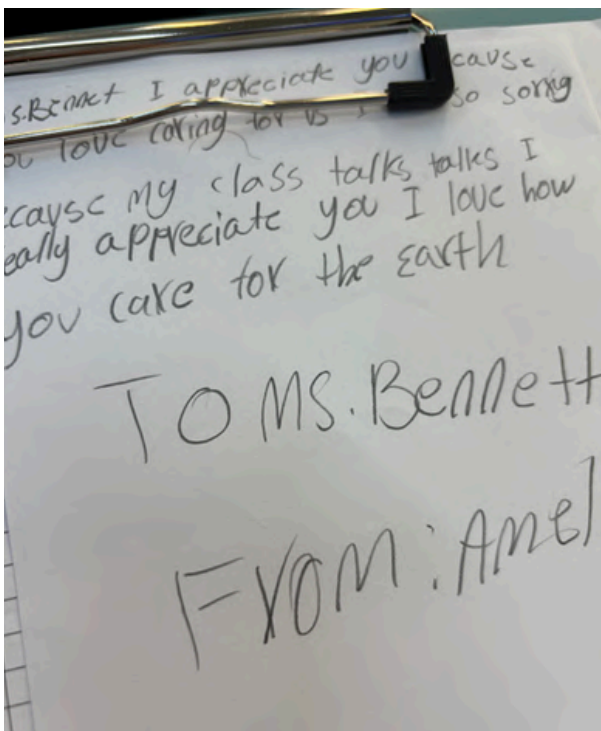 s.Bennet I appreciate you cause
ou love caring for us I so sorry
ecause my class talks talks I
eally appreciate you I love how
you care for the Earth
TO MS. Bennett
From: Amel